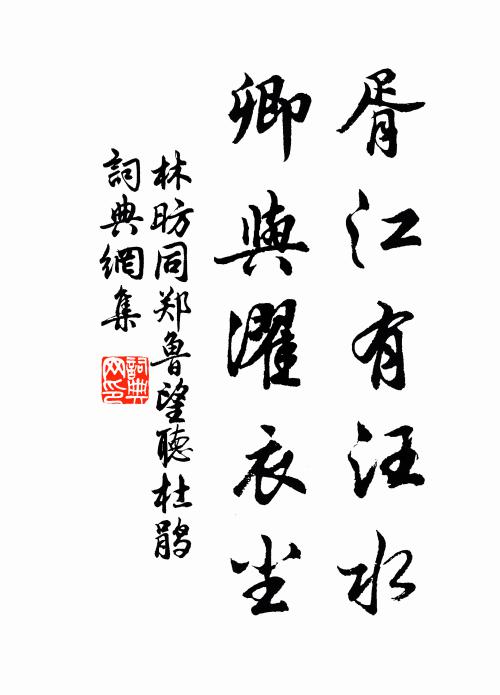 胥江有汪水
卿與濯衣尘
林昉同郑魯望聽杜鹃
詞典網集
詞典
网印